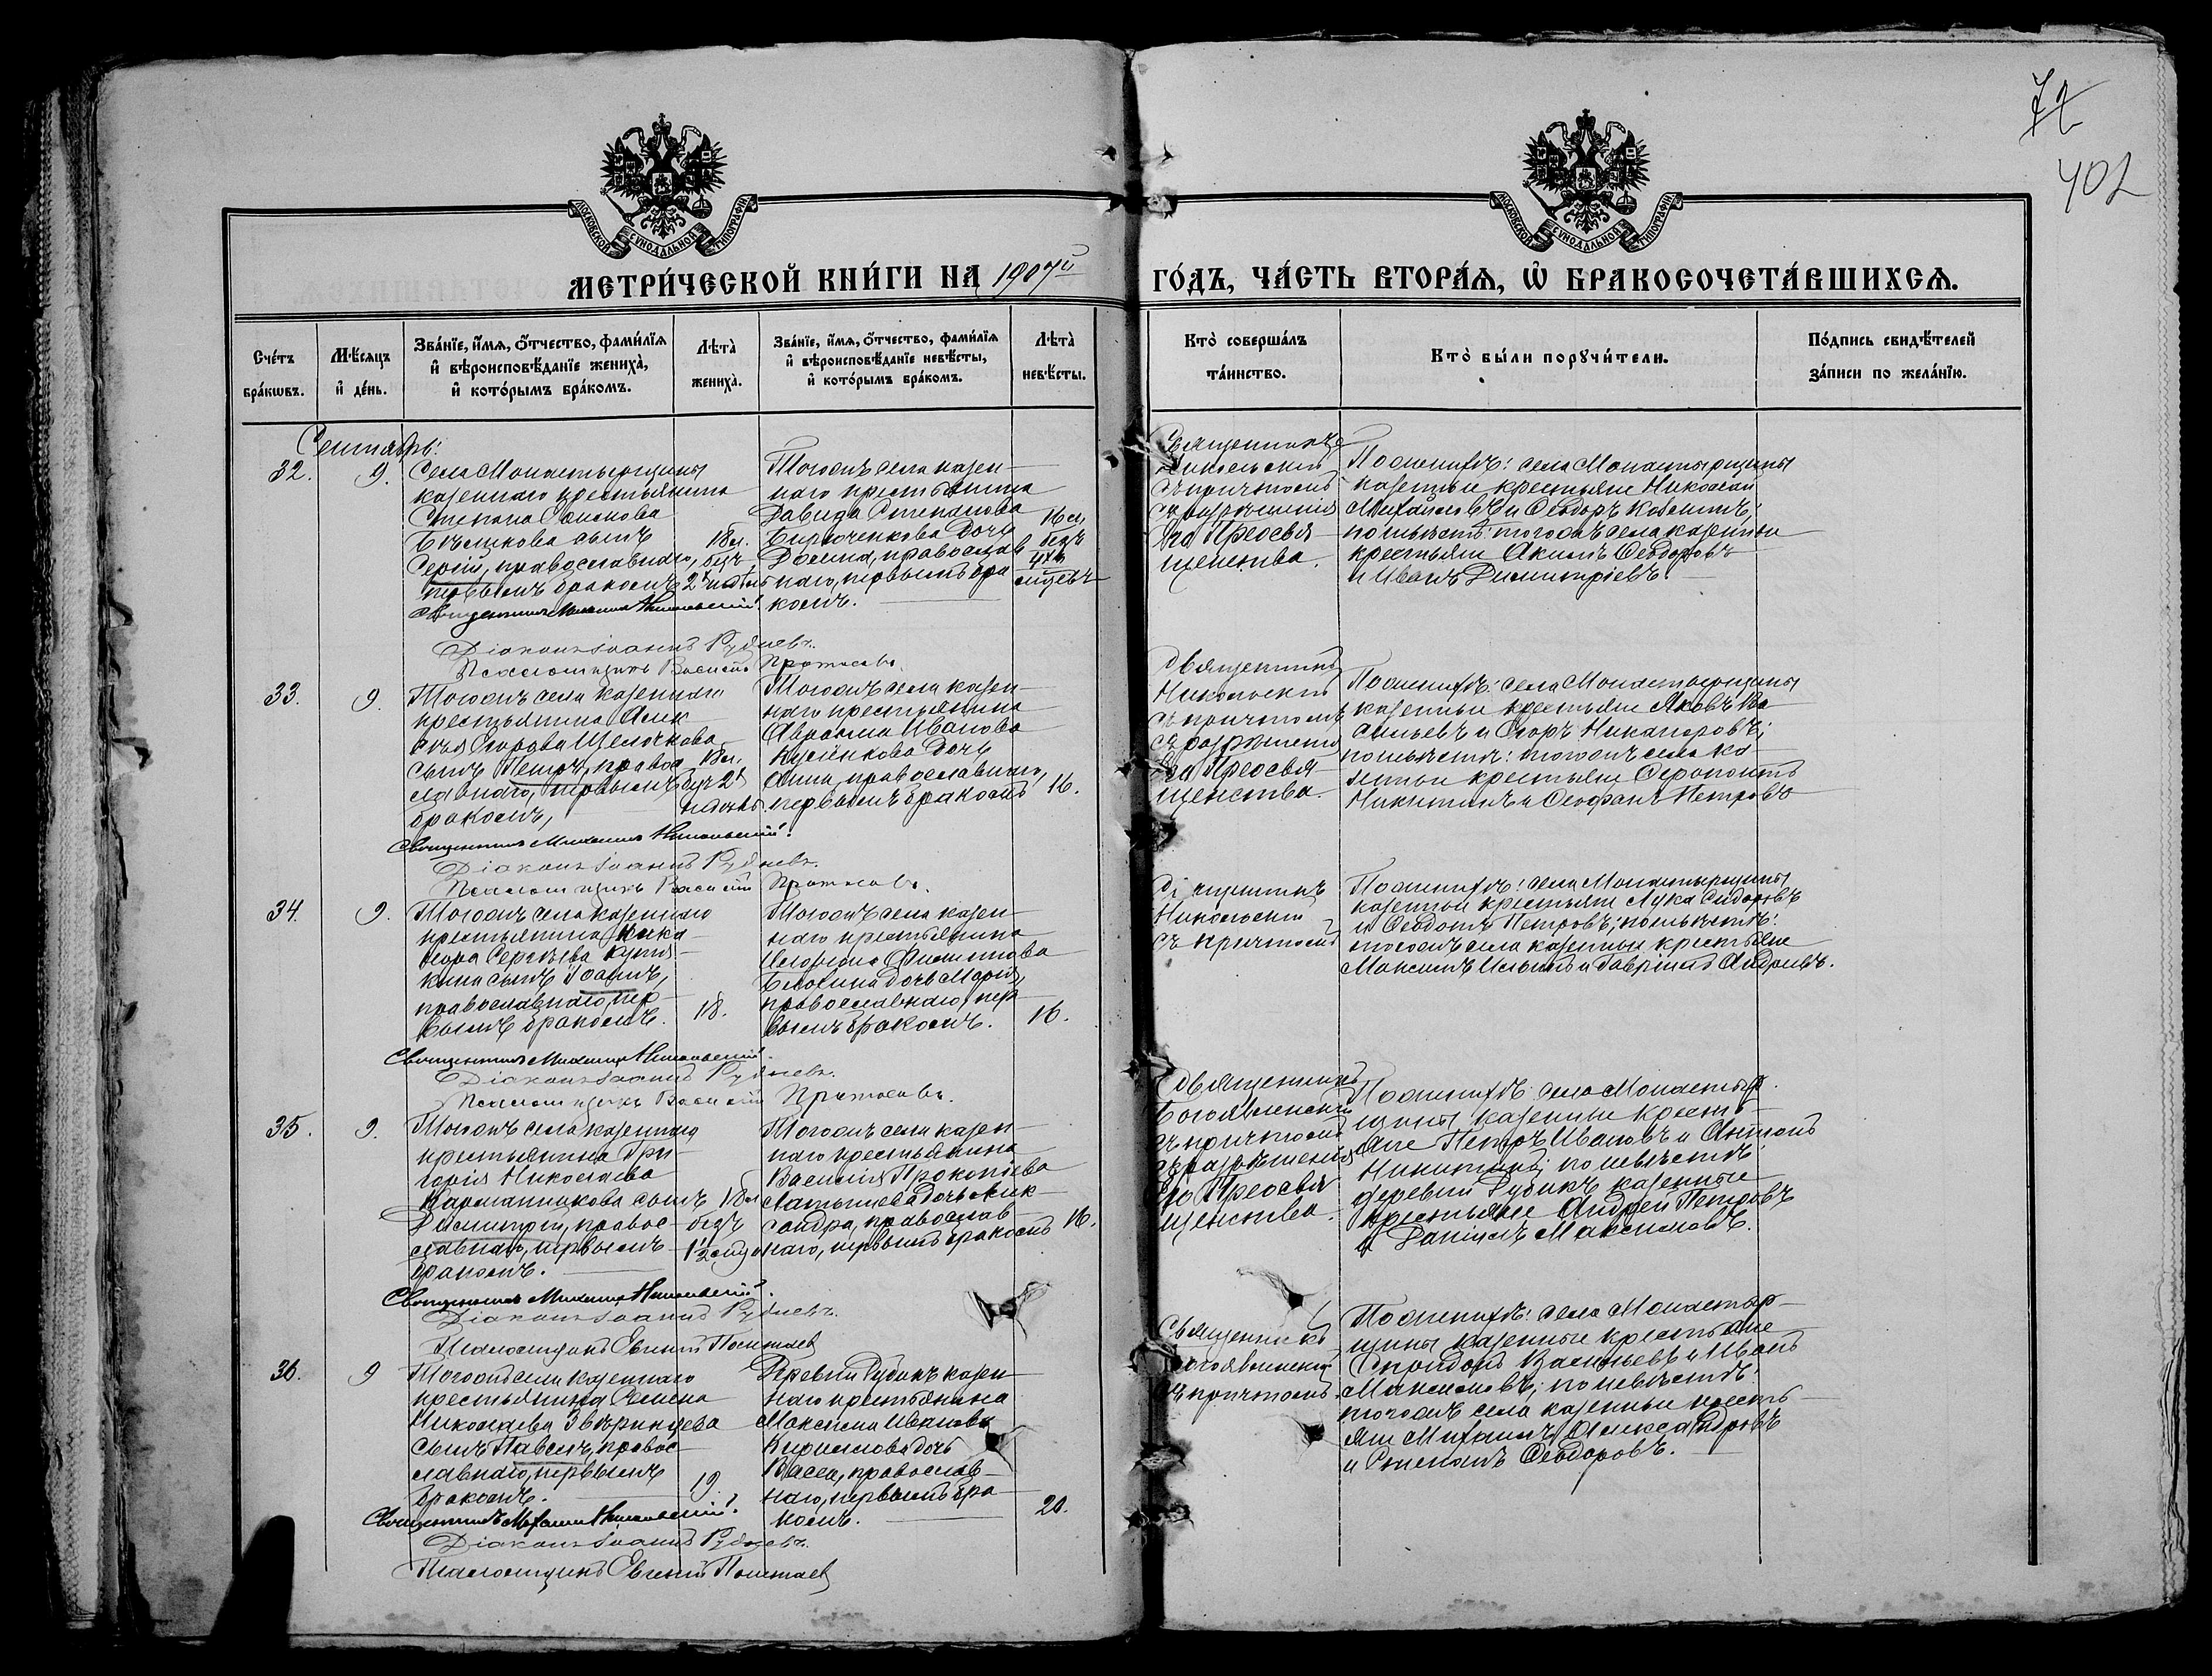 72
402
МОСКОВСКОЙ СУНОДАЛЬНОЙ ТИПОГРАФІИ
МОСКОВСКОЙ СУНОДАЛЬНОЙ ТИПОГРАФІИ
МЕТРИ́ЧЕСКОЙ КНИ́ГИ НА 1907й ГО́ДЪ, ЧА́СТЬ ВТОРА́Я, Ѡ҆ БРАКОСОЧЕТА́ВШИХСЯ.
Сче́тъ бра́кѡвъ.
Мѣ́сяцъ и҆ де́нь.
Зва́нїе, и҆́мя, ѻ҆́тчество, фами́лїя и҆ вѣроисповѣ́данїе жениха̀, и҆ кото́рымъ бра́комъ.
Лѣта̀ жениха̀.
Зва́нїе, и҆́мя, ѻ҆́тчество, фами́лїя и҆ вѣроисповѣ́данїе невѣ́сты, и҆ кото́рымъ бра́комъ.
Лѣта̀ невѣ́сты.
Кто̀ соверша́лъ та́инство.
Кто̀ бы́ли порꙋчи́тели.
По́дпись свидѣ́телей за́писи по жела́нїю.
Сентябрь:
32.
9.
Села Монастырщины
казеннаго крестьянина
Степана
сынъ
Сергій, православнаго,
первымъ бракомъ
18 л.
безъ
2х недѣль
Тогожъ села казен-
наго крестьянина
Давида Степанова
Бирюченкова дочь
православ
наго, первымъ бра
комъ.
16 л.
безъ
Священникъ
Никольскій
съ причтомъ
съ разрѣшенія
Его Преосвя-
щенства.
По женихѣ: села Монастырщины
казенные крестьяне Николай
Михайловъ и Ѳеодоръ
по невѣстѣ: тогожъ села казенные
крестьяне Акимъ Ѳеодоровъ
и Иванъ Димитріевъ.
Священникъ Михаилъ Никольскій.
Діаконъ Іоаннъ Рудневъ.
Псаломщикъ Василій Протасовъ.
33.
9.
Тогожъ села казеннаго
крестьянина Алек
сѣя Егорова Щелочкова
сынъ Петръ, правос
лавнаго, первымъ
бракомъ,
18 л.
безъ 2х
недѣль
Тогожъ села казен-
наго крестьянина
Аврама Иванова
дочь
Анна, православнаго,
первымъ бракомъ
16.
Священникъ
Никольскій
съ причтомъ
съ разрѣшенія
Его Преосвя-
щенства.
По женихѣ: села Монастырщины
казенные крестьяне Яковъ Ва
сильевъ и Егоръ Никаноровъ;
по невѣстѣ: тогожъ села ка-
зенные крестьяне Ѳерапонтъ
Никитинъ и Ѳеофанъ Петровъ
Священникъ Михаилъ Никольскій.
Діаконъ Іоаннъ Рудневъ.
Псаломщикъ Василій Протасовъ.
34.
9.
Тогожъ села казеннаго
крестьянина Ника
нора Сергѣева
кина сынъ Іоаннъ,
православнаго, пер-
вымъ бракомъ.
18.
Тогожъ села казен-
наго крестьянина
Филиппова
дочь Марія,
православнаго, пер-
вымъ бракомъ.
16.
Священникъ
Никольскій
съ причтомъ
По женихѣ: села Монастырщины
казенные крестьяне Лука Сидоровъ
и Ѳеодотъ Петровъ; по невѣстѣ:
тогожъ села казенные крестьяне
Максимъ Ильинъ и Гавріилъ Андреевъ.
Священникъ Михаилъ Никольскій.
Діаконъ Іоаннъ Рудневъ.
Псаломщикъ Василій Протасовъ.
35.
9.
Тогожъ села казеннаго
крестьянина Гри-
горія Николаева
Карманникова сынъ
Димитрій, правос-
славнаго, первымъ
бракомъ.
18 л
безъ
Тогожъ села казен-
наго крестьянина
Василія Прокопіева
Латышева дочь Алек-
сандра, православ-
наго, первымъ бракомъ
16.
Священникъ
Богоявленскій
съ причтомъ
съ разрѣшенія
Его Преосвя
щенства.
По женихѣ: села Монастыр-
щины казенные кресть-
яне Петръ Ивановъ и Антонъ
Никитинъ; по невѣстѣ:
деревни Рубикъ казенные
крестьяне Андрей Петровъ
и Даніилъ Максимовъ.
Священникъ Михаилъ Никольскій.
Діаконъ Іоаннъ Рудневъ.
Псаломщикъ Евгеній
36.
9
Тогожъ села казеннаго
крестьянина Семена
Николаева Звѣринцева
сынъ Павелъ, правос-
лавнаго, первымъ
бракомъ.
19.
Деревни Рубикъ казен
наго крестьянина
Максима Иванова
Кириллова дочь
Васса, православ-
наго, первымъ бра-
комъ.
20.
Священникъ
Богоявленскій
съ причтомъ.
По женихѣ: села Монастыр-
щины казенные крестьяне
Спиридонъ Васильевъ и Иванъ
Максимовъ; по невѣстѣ:
тогожъ села казенные кресть-
яне Михаилъ Александровъ
и Степанъ Ѳеодоровъ.
Священникъ Михаилъ Никольскій.
Діаконъ Іоаннъ Рудневъ.
Псаломщикъ Евгеній